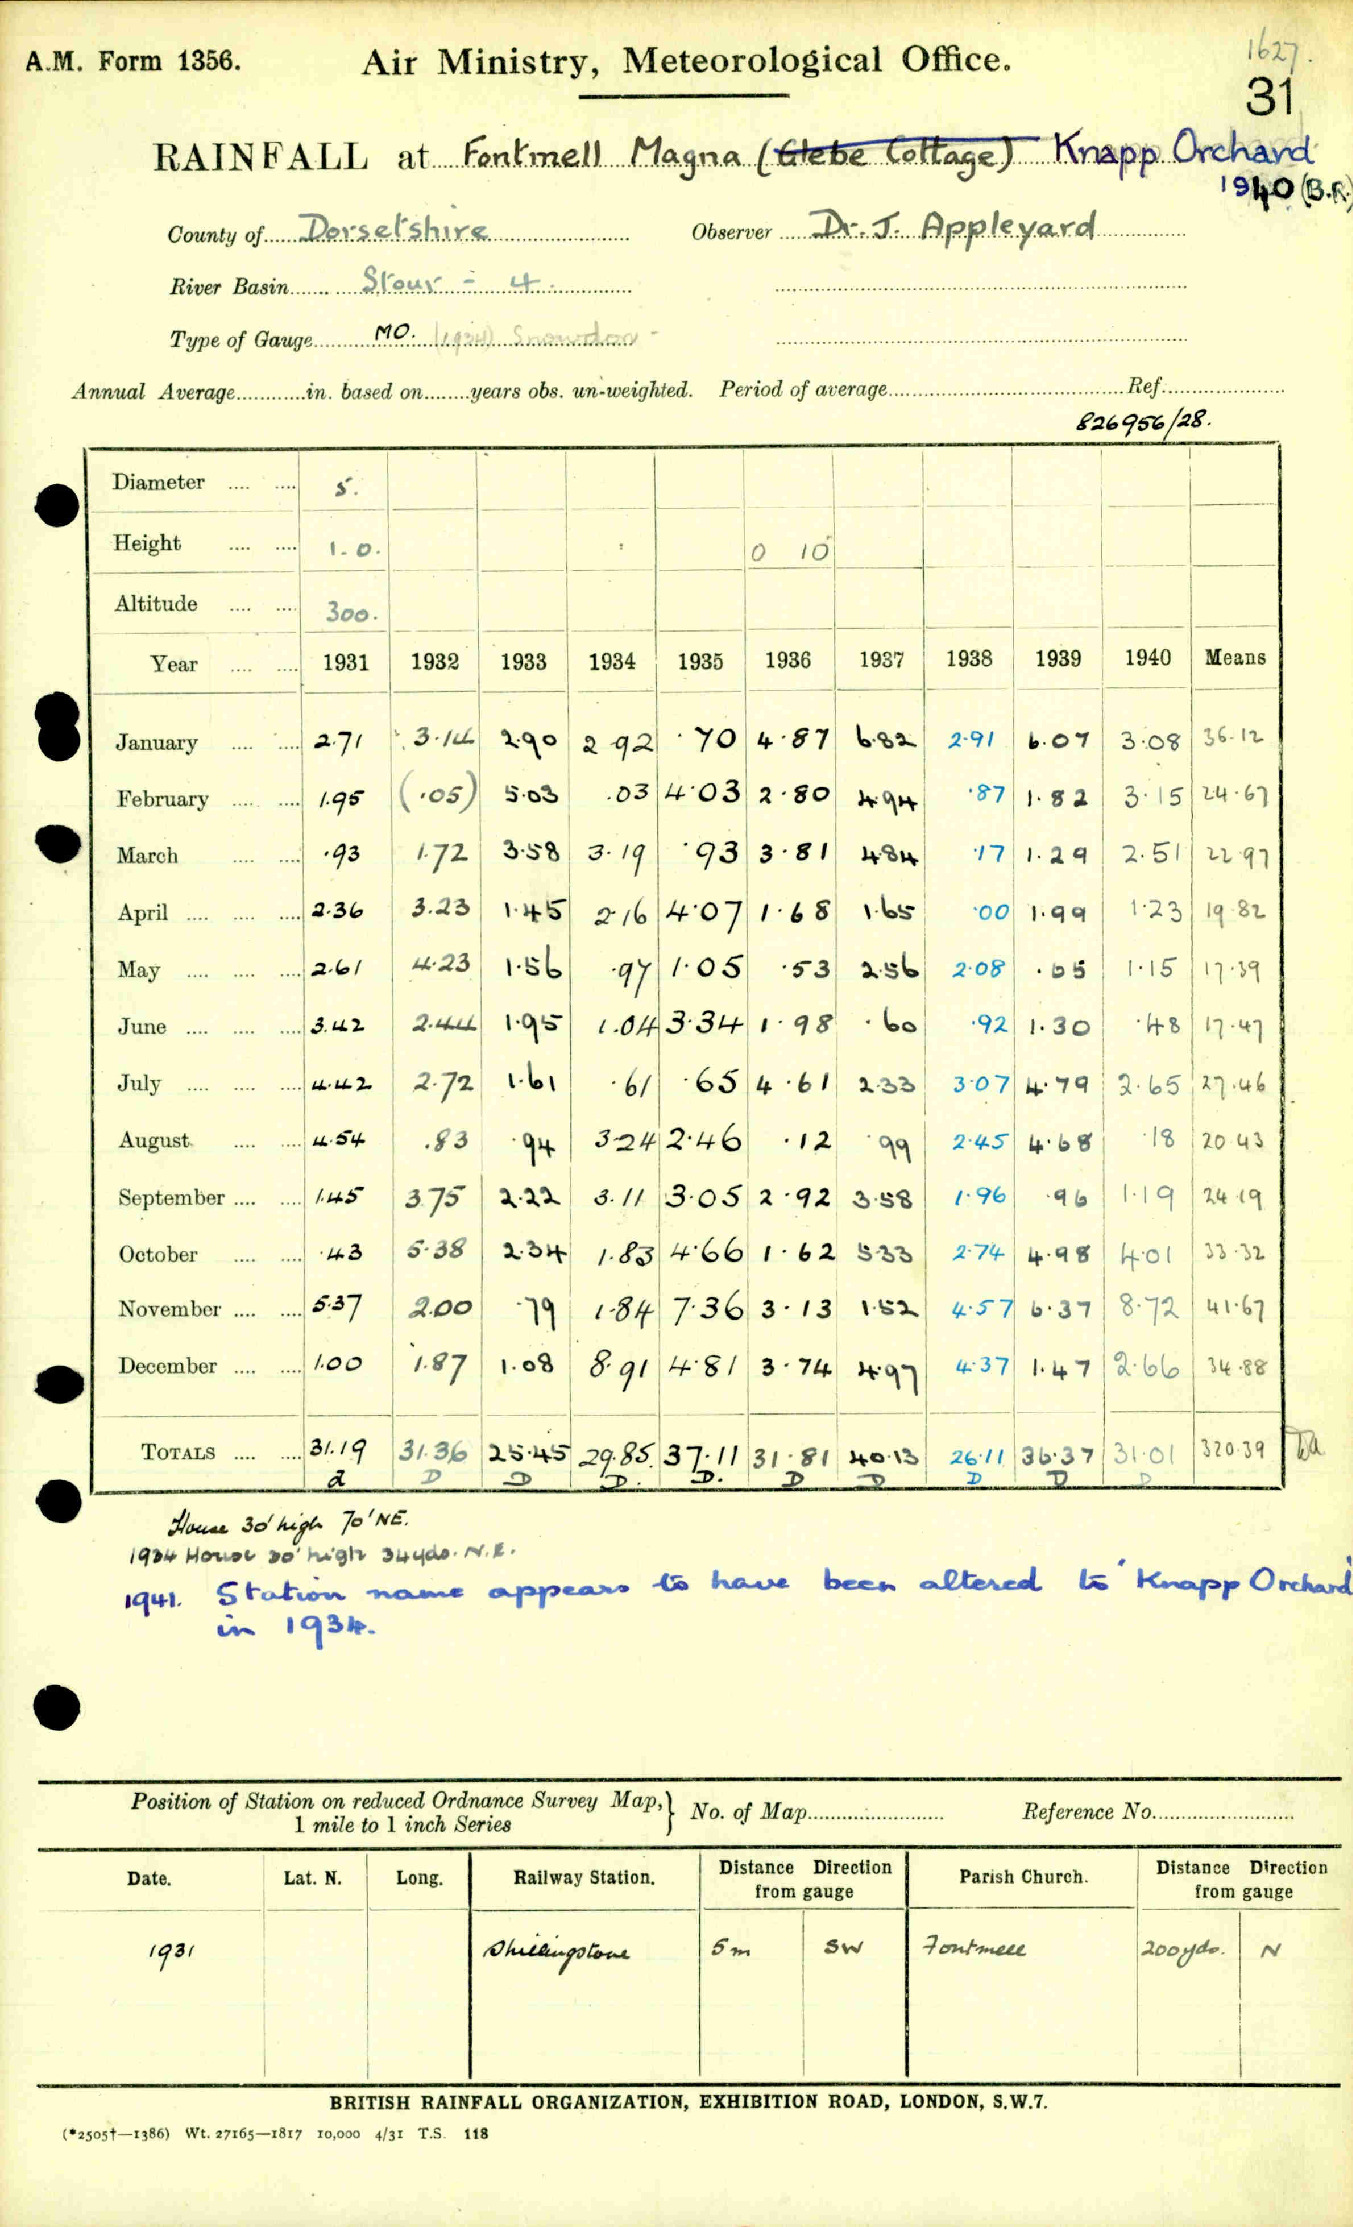 1627.
A.M. Form 1356. Air Ministry, Meteorological Office.
31
RAINFALL at Fontmell Magna (Glebe Cottage) Knapp Orchard
1940 (B.R.)
County of Dorsetshire Observer Dr. J. Appleyard
River Basin Stour - 4.
Type of Gauge MO. (1934) Snowdon -
Annual Average in. based on years obs. un-weighted. Period of average Ref.
826956/28.
Diameter 5.
Height 1.0. 0 10
Altitude 300.
Year 1931 1932 1933 1934 1935 1936 1937 1938 1939 1940 Means
January 2.71 3.14 2.90 2.92 .70 4.87 6.82 2.91 6.07 3.08 36.12
February 1.95 (.05) 5.03 .03 4.03 2.80 4.94 .87 1.82 3.15 24.67
March .93 1.72 3.58 3.19 .93 3.81 4.84 .17 1.29 2.51 22.97
April 2.36 3.23 1.45 2.16 4.07 1.68 1.65 .00 1.99 1.23 19.82
May 2.61 4.23 1.56 .97 1.05 .53 2.56 2.08 .65 1.15 17.39
June 3.42 2.44 1.95 1.04 3.34 1.98 .60 .92 1.30 .48 17.47
July 4.42 2.72 1.61 .61 .65 4.61 2.33 3.07 4.79 2.65 27.46
August 4.54 .83 .94 3.24 2.46 .12 .99 2.45 4.68 .18 20.43
September 1.45 3.75 2.22 3.11 3.05 2.92 3.58 1.96 .96 1.19 24.19
October .43 5.38 2.34 1.83 4.66 1.62 5.33 2.74 4.98 4.01 33.32
November 5.37 2.00 .79 1.84 7.36 3.13 1.52 4.57 6.37 8.72 41.67
December 1.00 1.87 1.08 8.91 4.81 3.74 4.97 4.37 1.47 2.66 34.88
TOTALS 31.19 31.36 25.45 29.85 37.11 31.81 40.13 26.11 36.37 31.01 320.39
d D D D. D. D D D D D
House 30' high 70' NE.
1934 House 30' high 34 yds. N.E.
1941. Station name appears to have been altered to "Knapp Orchard"
in 1934.
Position of Station on reduced Ordnance Survey Map, } No. of Map Reference No.
1 mile to 1 inch Series
Date. Lat. N. Long. Railway Station. Distance Direction from gauge Parish Church. Distance Direction from gauge
1931 Shillingstone 5m SW Fontmell 200yds. N
BRITISH RAINFALL ORGANIZATION, EXHIBITION ROAD, LONDON, S.W.7.
(*2505†—1386) Wt. 27165—1817 10,000 4/31 T.S. 118